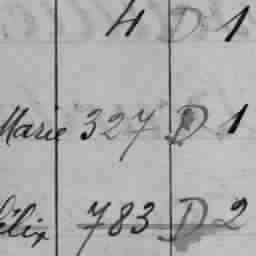 4 D 1
Marie 327 D 1
élix 783 D 2